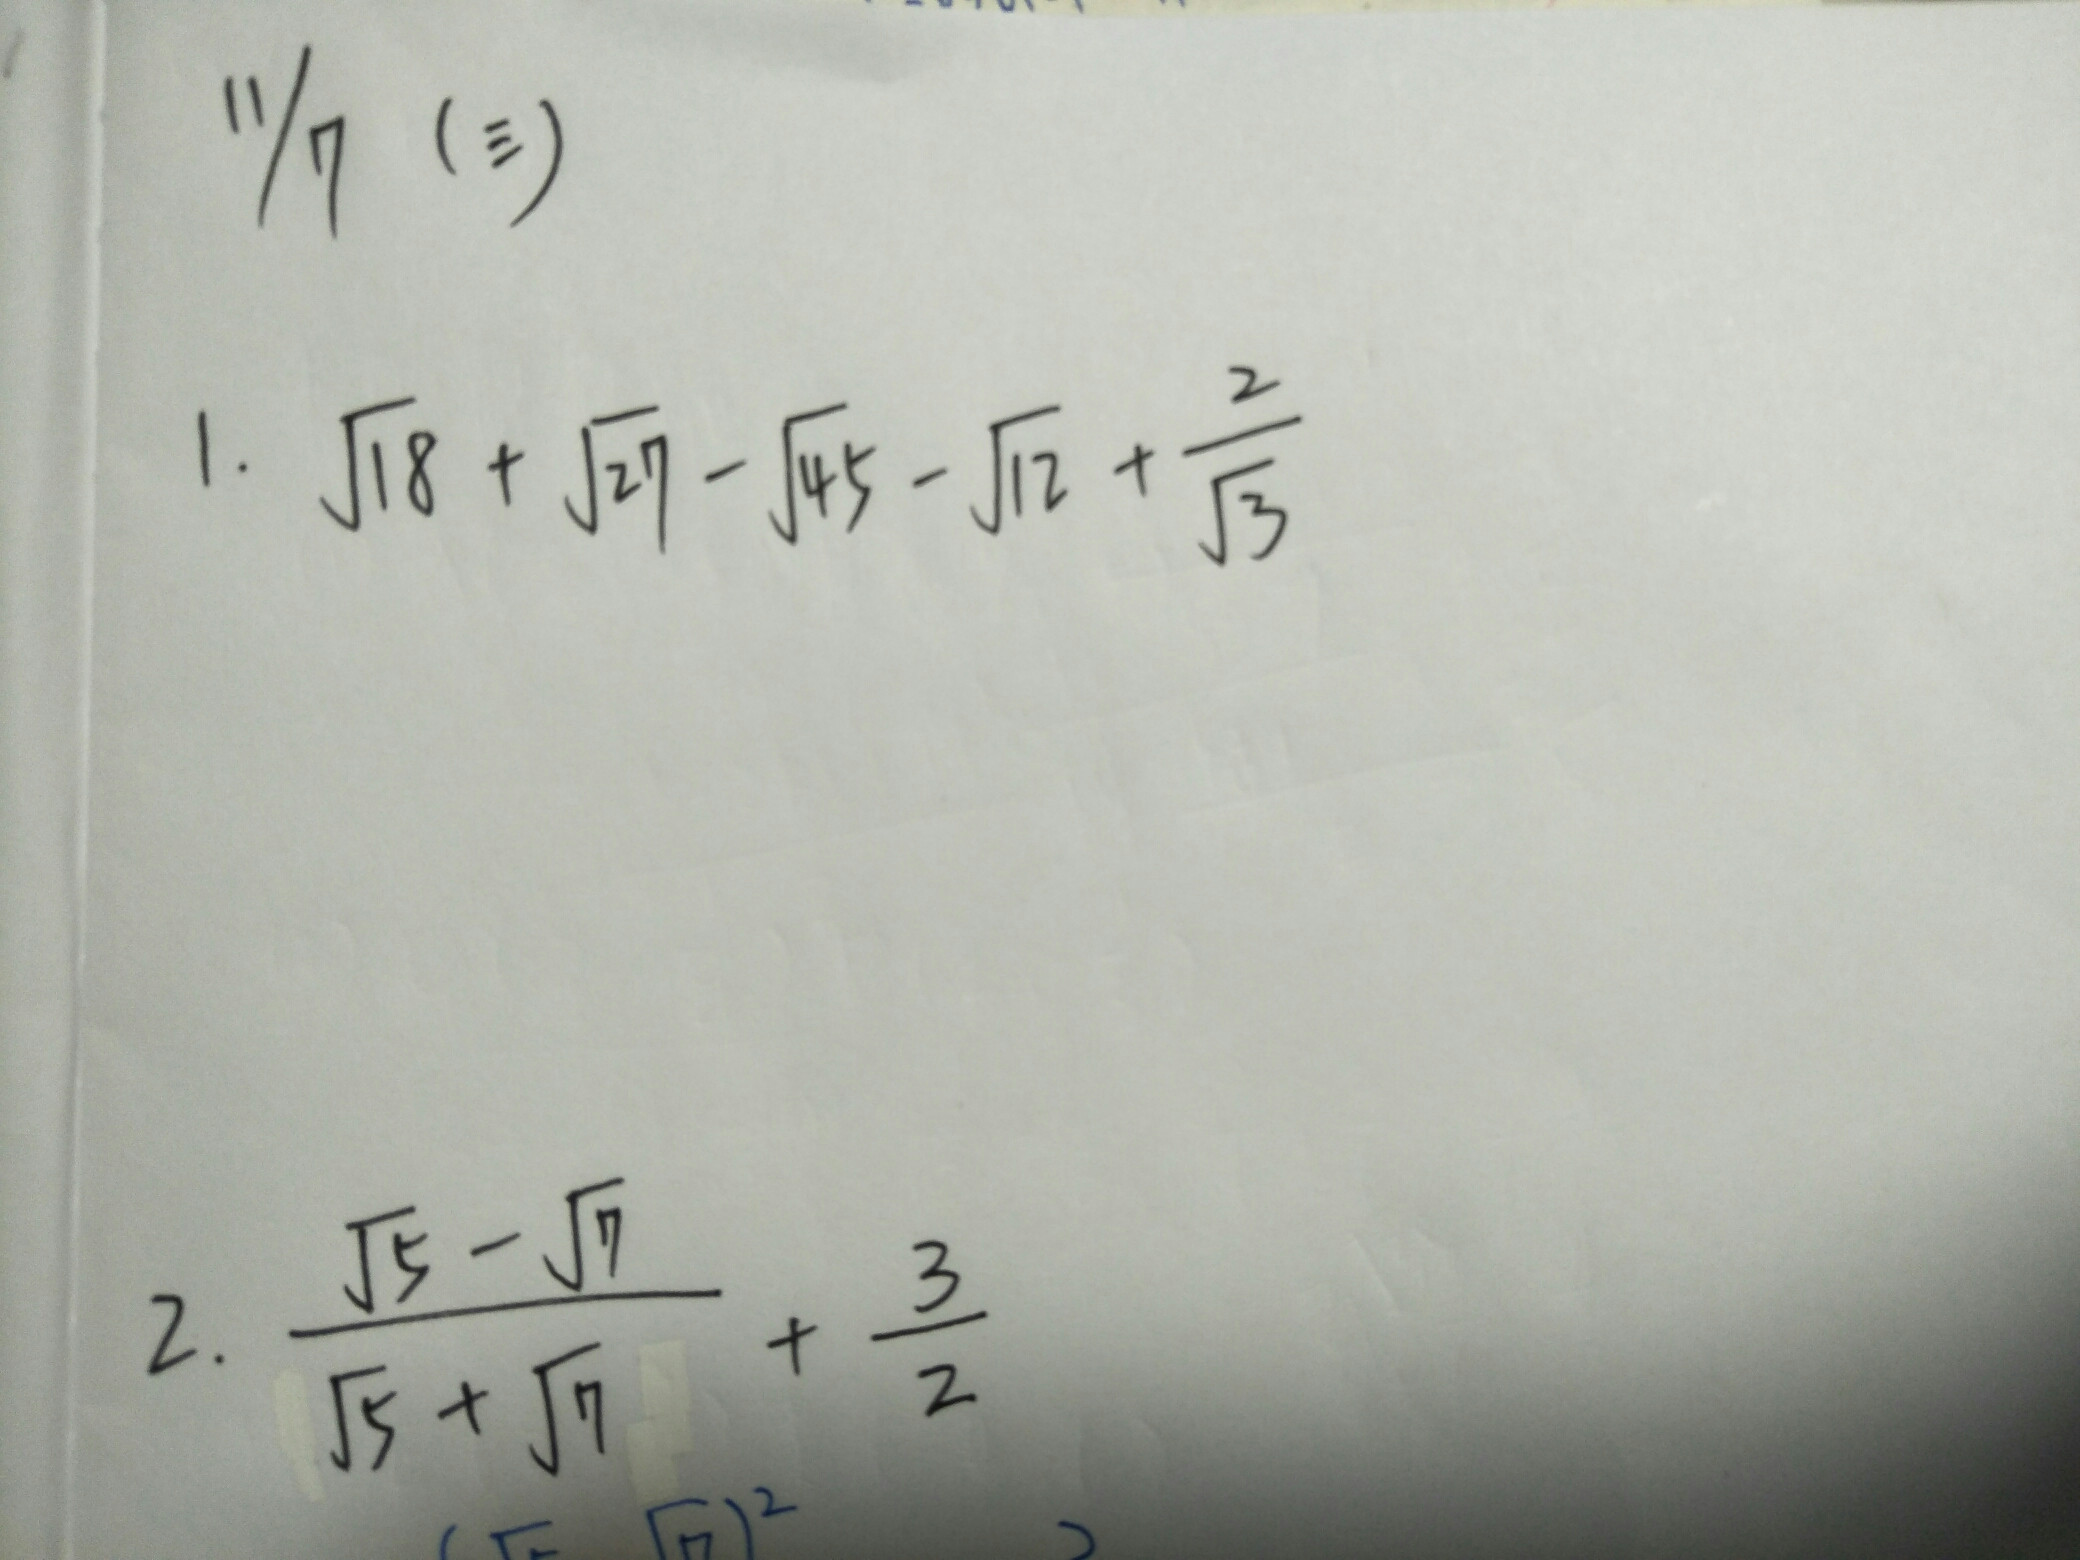 11/7 (三)
1. √18 + √27 - √45 - √12 + 2/√3
2. (√5 - √7)/(√5 + √7) + 3/2